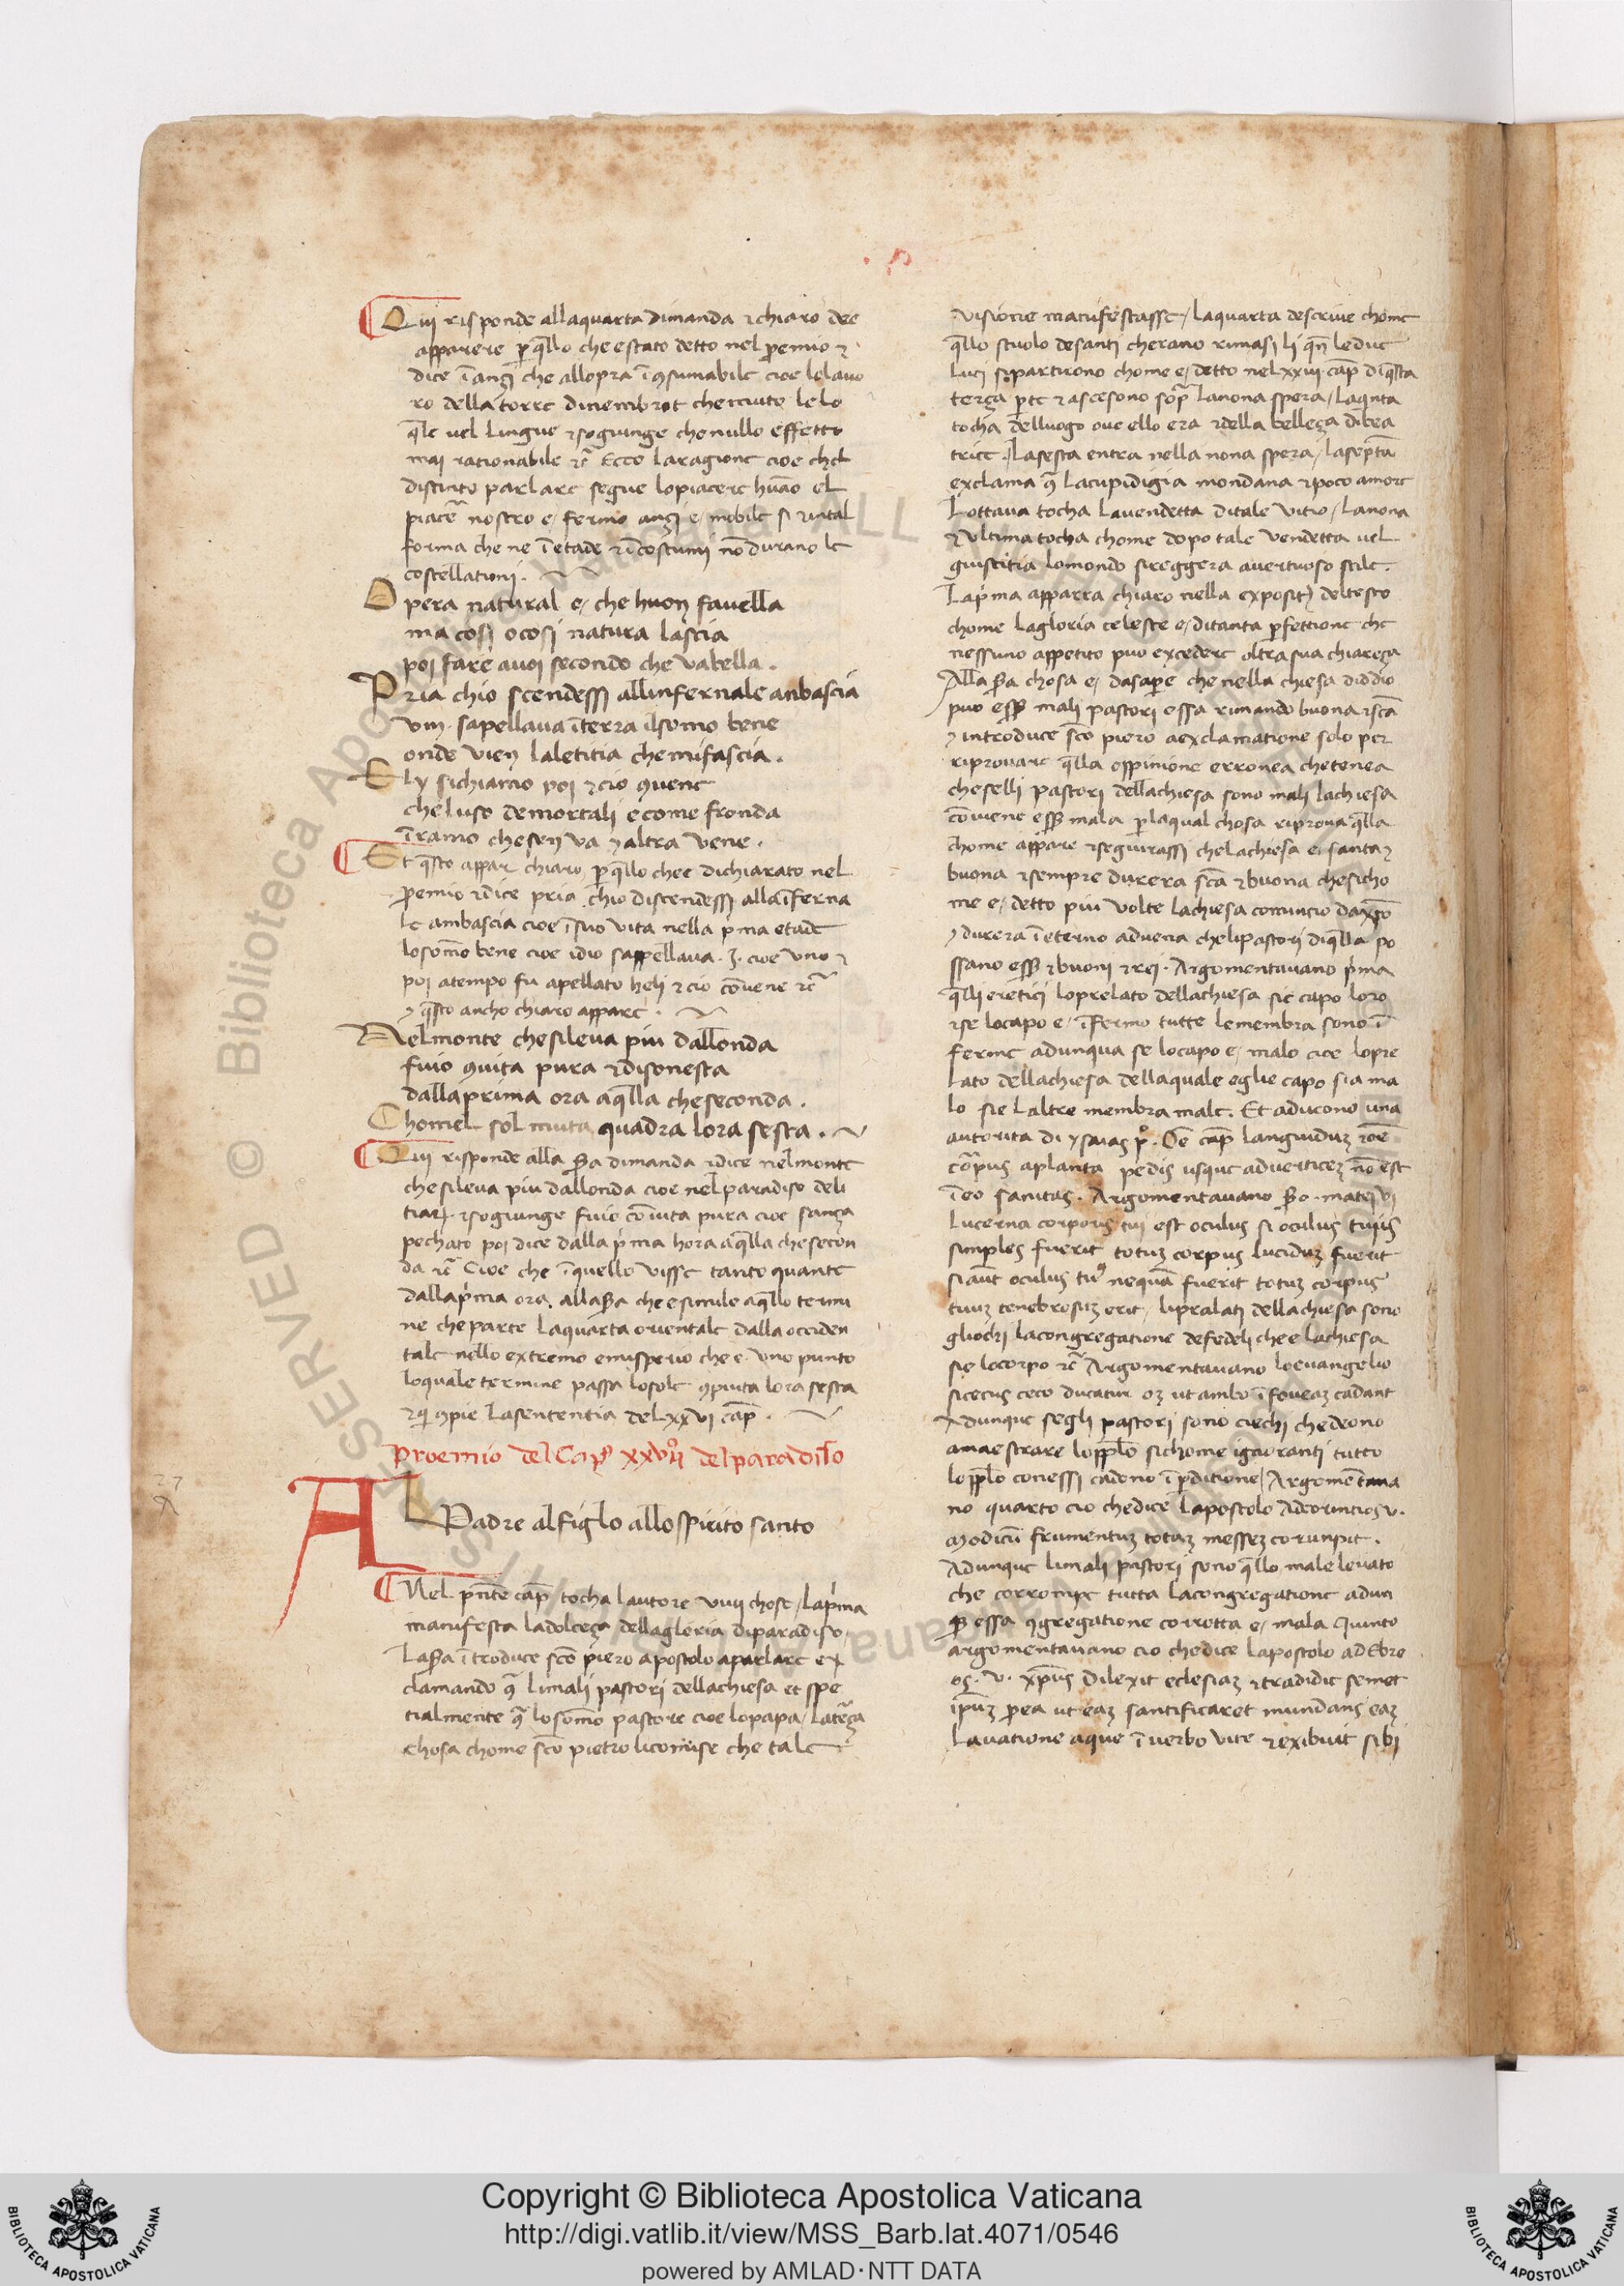 Qui risponde allaquarta dimanda ⁊chiaro dee
apparere p̱ q̄llo che estato detto nel p̱emio ⁊
dice īanҙi che allopra ī ꝯsumabile cioe lolauo
ro della torre dinembrot che
q̄le uel lingue ⁊sogiunge chenullo effetto
mai rationabile ⁊c̄ Ecco laragione cioe chel
distinto parlare segue lopiacere huāo el
piacer̄ nostro e/ fermo anҙi e/ mobile si ⁊intal
forma che ne ī etade ⁊ī costumi nō durano le
costellationi .
Opera natural e/ che huon favella
ma cosi o cosi natura lascia
poi fare auoi secondo che vabella .
Pria chio scendessi allinfernale anbascia
vm . sapellaua īterra ilsomo bene
onde vien laletitia chemifascia .
Ely sichiamo poi ⁊cio ꝯuene
cheluso demortali e come fronda
īramo chesen va ⁊ altra vene .
Et q̄sto appar chiaro p̱ q̄llo chee dichiarato nel
p̱emio ⁊dice pria chio discendessi allaīferna
le ambascia cioe īsuo vita nella p̍ma etade
losom̄o bene cioe idio sappellaua . I . cioe vno ⁊
poi atempo fu apellato heli ⁊cio cōuene ⁊c̄
⁊ q̄sto ancho chiaro appare .
Nelmonte chesileua piu dallonda
fuio ꝯuita pura ⁊disonesta
dallaprima ora aq̄lla cheseconda .
Chomel sol muta quadra lora sesta .
Qui risponde alla s̄a dimanda ⁊dice nelmonte
chesileua piu dallonda cioe nel paradiso deli
tiar̄ . ⁊sogiunge fuio cōuita pura cioe sanҙa
pechato poi dice dalla p̍ma hora aq̄lla chesecon
da ⁊c̄ Cioe che ī quello visse tanto quante
dallap̍ma ora . alla s̄a che esimile aq̄llo termi
ne che parte laquarta orientale dalla occiden
tale nello extremo emisperio che e . vno punto
loquale termine passa losole ꝯpiuta lora sesta
⁊qi ꝯpie lasententia del xxvi cap̄ .
Proemio del Cap̊ xxvii̊ delparadiso
AL Padre alfiglo allo spirito santo
Nel pn̄te cap̄ tocha lautore viiij chose / lap̍ma
manifesta ladolceҙa dellagloria diparadiso /
La s̄a ītroduce sc̄o piero apostolo aparlare ex
clamando ꝯͣ limali pastori dellachiesa et spe
tialmente ꝯͣ losom̄o pastore cioe lopapa / laterҙa
chosa chome sc̄o pietro licomise che tale
visione manifestasse / laquarta descriue chome
q̄llo stuolo desanti cherano rimasi li qn̄ ledue
luci sipartirono chome e/ detto nel xxiii cap̄ diq̄sta
terҙa p̱te ⁊ascesono sop̄ lanona spera / laq̍nta
tocha delluogo oue ello era ⁊della belleҙa dibea
trice . / lasesta entra nella nona spera / lasep̄ta
exclama ꝯͣ lacupidigia mondana ⁊poco amore
Lottaua tocha lauendetta ditale vitio / lanona
⁊vltima tocha chome dopo tale vendetta uel
giustitia lomondo sireggera auertuoso stile .
Lap̍ma apparra chiaro nella expositͥ deltesto
chome lagloria celeste e/ ditanta p̱fettione che
nessuno appetito puo excedere oltra sua chiareҙa
Alla s̄a chosa e/ dasap̱e che nella chiesa diddio
puo ess̄ mali pastori essa rimando buona ⁊sc̄a
⁊ introduce sc̄o piero aexclamatione solo per
riprouare q̄lla oppinione erronea chetenea
cheselli pastori dellachiesa sono mali lachiesa
cōuiene ess̄ mala p̱ laqual chosa riproua q̄lla
chome appare ⁊seguirassi chelachiesa e/ santa ⁊
buona ⁊sempre durera sc̄a ⁊buona chesicho
me e/ detto piu volte lachiesa comincio daxp̄o
⁊durera ī eterno aduena chelipastori diq̄lla po
ssano ess̄ ⁊buoni ⁊rei . Argomentauano p̍ma
q̄lli eretici loprelato dellachiesa sie capo loro
⁊se locapo e/ īfermo tutte lemembra sono ī
ferme adunqua se locapo e/ malo cioe lopre
lato dellachiesa dellaquale eglie capo sia ma
lo sie laltre membra male . Et aducono una
autorita di ysaias p̊ . Oē cap̄ languiduҙ ⁊oē
cōrpus aplanta pedis usque aduerticeҙ nō est
ī eo sanitas . Argomentauano s̄o . matei vi
Lucerna corporis tui est oculus si oculus tuus
simples fuerit totuҙ corpus luciduҙ fuerit
siaut̄ oculus tuꝰ nequā fuerit totuҙ corpus
tuuҙ tenebrosuҙ erit / liprelati dellachiesa sono
gliochi lacongregatione defedeli chee lachiesa
sie locorpo ⁊c̄ Argomentauano loeuangelio
sicecus ceco ducatur oҙ ut ambo ī foueaҙ cadant
Adunque segli pastori sono ciechi chedeono
amaestrare lopp̱lo sichome ignoranti tutto
lopp̱lo conessi cadono ī p̱ditione / Argomētaua
no quarto cio chedice lapostolo Adcorintios v .
Modicū frumentuҙ totaҙ messeҙ corunpit .
Adunque limali pastori sono q̄llo male leuato
che corrompe tutta lacongregatione adun
q̄ essa ꝯgregatione corrotta e/ mala Quinto
argomentauano cio chedice lapostolo ad Ebre
os . v . xp̄us dilexit eclesiaҙ ⁊tradidit semet
ip̄uҙ p̱ ea ut eaҙ santificaret mundans eaҙ
Lauatione aque ī uerbo vite ⁊exibuit sibi
Copyright © Biblioteca Apostolica Vaticana
http://digi.vatlib.it/view/MSS_Barb.lat.4071/0546
powered by AMLAD·NTT DATA